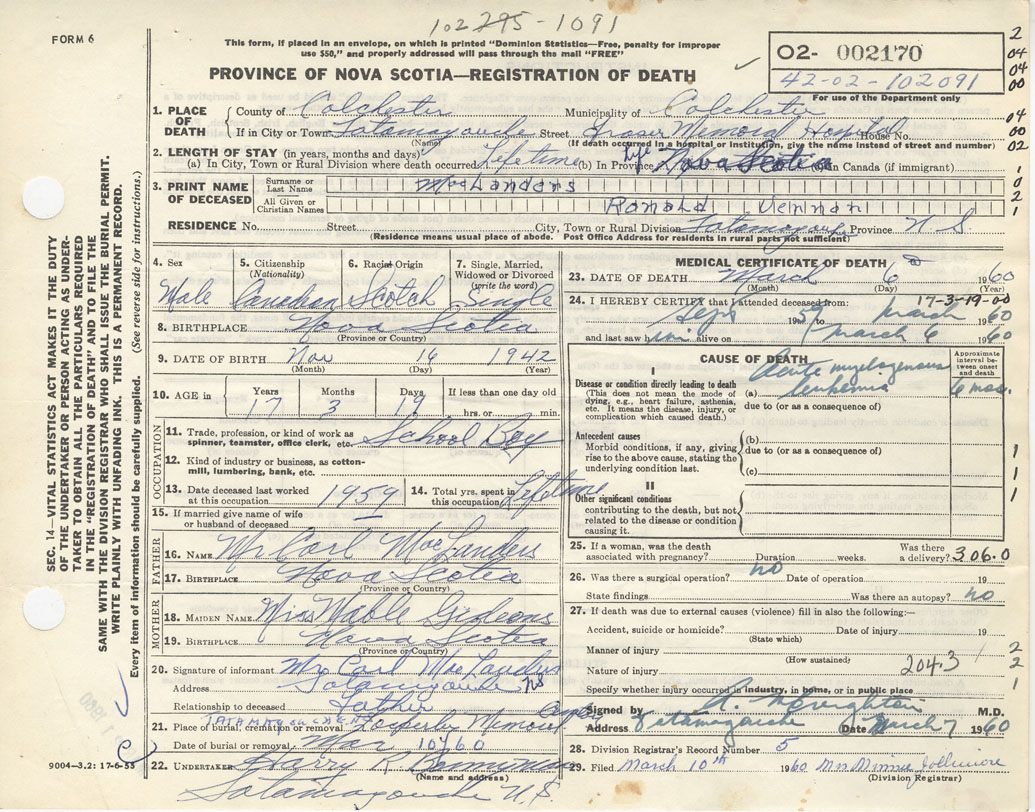 102295-1091
FORM 6
This form, if placed in an envelope, on which is printed "Dominion Statistics—Free, penalty for improper
use $50," and properly addressed will pass through the mail "FREE"
02- 002170
42-02-102091
For use of the Department only
PROVINCE OF NOVA SCOTIA—REGISTRATION OF DEATH
2
04
04
00
04
00
02
1
0
2
1
1. PLACE OF DEATH
County of Colchester Municipality of Colchester
If in City or Town Tatamagouche Street Fraser Memorial Hospital House No.
(Name) (If death occurred in a hospital or institution, give the name instead of street and number)
2. LENGTH OF STAY (in years, months and days)
(a) In City, Town or Rural Division where death occurred Lifetime (b) In Province Nova Scotia (c) in Canada (if immigrant)
3. PRINT NAME OF DECEASED
Surname or Last Name MacLanders
All Given or Christian Names Ronald Venman
RESIDENCE No. Street City, Town or Rural Division Tatamagouche Province N.S.
(Residence means usual place of abode. Post Office Address for residents in rural parts not sufficient)
4. Sex
Male
5. Citizenship
(Nationality)
Canadian
6. Racial Origin
Scotch
7. Single, Married,
Widowed or Divorced
(write the word)
Single
8. BIRTHPLACE Nova Scotia
(Province or Country)
9. DATE OF BIRTH Nov 16 1942
(Month) (Day) (Year)
10. AGE in
Years Months Days If less than one day old
17 3 hrs. or min.
OCCUPATION
11. Trade, profession, or kind of work as
spinner, teamster, office clerk, etc. School Boy
12. Kind of industry or business, as cotton-
mill, lumbering, bank, etc.
13. Date deceased last worked
at this occupation 1959
14. Total yrs. spent in
this occupation Lifetime
15. If married give name of wife
or husband of deceased
FATHER
16. NAME Mr Carl MacLanders
17. BIRTHPLACE Nova Scotia
(Province or Country)
MOTHER
18. MAIDEN NAME Miss Mable Gideons
19. BIRTHPLACE Nova Scotia
(Province or Country)
20. Signature of informant Mrs Carl MacLanders
Address Tatamagouche NS
Relationship to deceased Father
21. Place of burial, cremation or removal TATAMAGOUCHE
Date of burial or removal Mar 10/60
22. UNDERTAKER Harry R
(Name and address)
Tatamagouche N.S.
MEDICAL CERTIFICATE OF DEATH
23. DATE OF DEATH March 6 1960
(Month) (Day) (Year)
24. I HEREBY CERTIFY that I attended deceased from:
17-3-19-00
Sept 1959 March 1960
and last saw him alive on March 6 1960
CAUSE OF DEATH
Approximate
interval be-
tween onset
and death
I
Disease or condition directly leading to death
(This does not mean the mode of
dying, e.g., heart failure, asthenia,
etc. It means the disease, injury, or
complication which caused death.)
(a) Acute myelogenous leukemia 6 mos.
due to (or as a consequence of)
Antecedent causes
Morbid conditions, if any, giving
rise to the above cause, stating the
underlying condition last.
(b)
due to (or as a consequence of)
(c)
1
1
1
II
Other significant conditions
contributing to the death, but not
related to the disease or condition
causing it.
25. If a woman, was the death
associated with pregnancy? Duration weeks. Was there
a delivery? 306.0
26. Was there a surgical operation? no Date of operation 19
State findings Was there an autopsy? no
27. If death was due to external causes (violence) fill in also the following:—
Accident, suicide or homicide? Date of injury 19
(State which)
Manner of injury
(How sustained)
Nature of injury 204.3
2
2
1
Specify whether injury occurred in industry, in home, or in public place
Signed by M.D.
Address Tatamagouche Date March 7 1960
28. Division Registrar's Record Number 5
29. Filed March 10th 1960 Mrs Minnie Jollimore
(Division Registrar)
SEC. 14—VITAL STATISTICS ACT MAKES IT THE DUTY
OF THE UNDERTAKER OR PERSON ACTING AS UNDER-
TAKER TO OBTAIN ALL THE PARTICULARS REQUIRED
IN THE "REGISTRATION OF DEATH" AND TO FILE THE
SAME WITH THE DIVISION REGISTRAR WHO SHALL ISSUE THE BURIAL PERMIT.
WRITE PLAINLY WITH UNFADING INK. THIS IS A PERMANENT RECORD.
Every item of information should be carefully supplied. (See reverse side for instructions.)
9004—3.2: 17-6-55